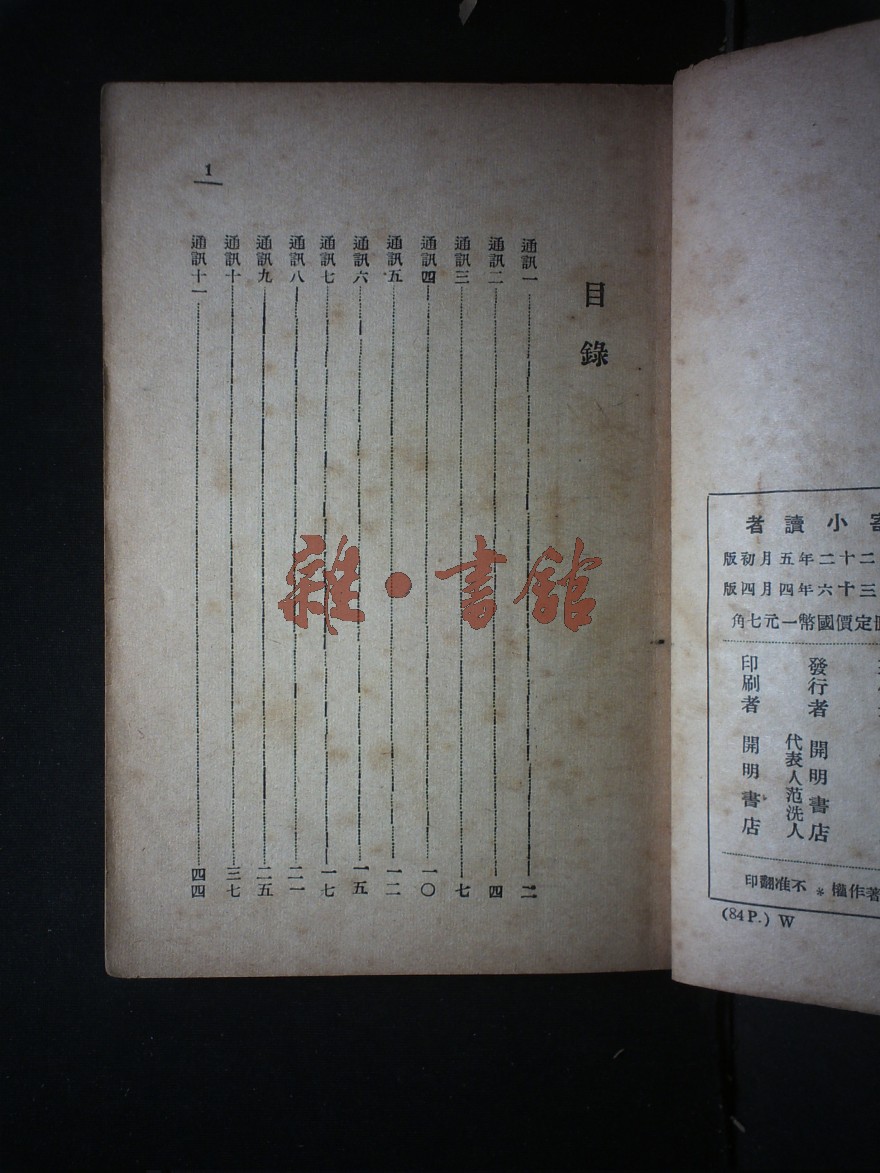 小讀者
二十二年五月初版
三十六年四月四版
定價國幣一元七角
發行者 開明書店
代表人范洗人
印刷者 開明書店
著作權*不准翻印
(84 P.) W
1
目錄
通訊一 二
通訊二 四
通訊三 七
通訊四 一〇
通訊五 一二
通訊六 一五
通訊七 一七
通訊八 二一
通訊九 二五
通訊十 三七
通訊十一 四四
雜·書館